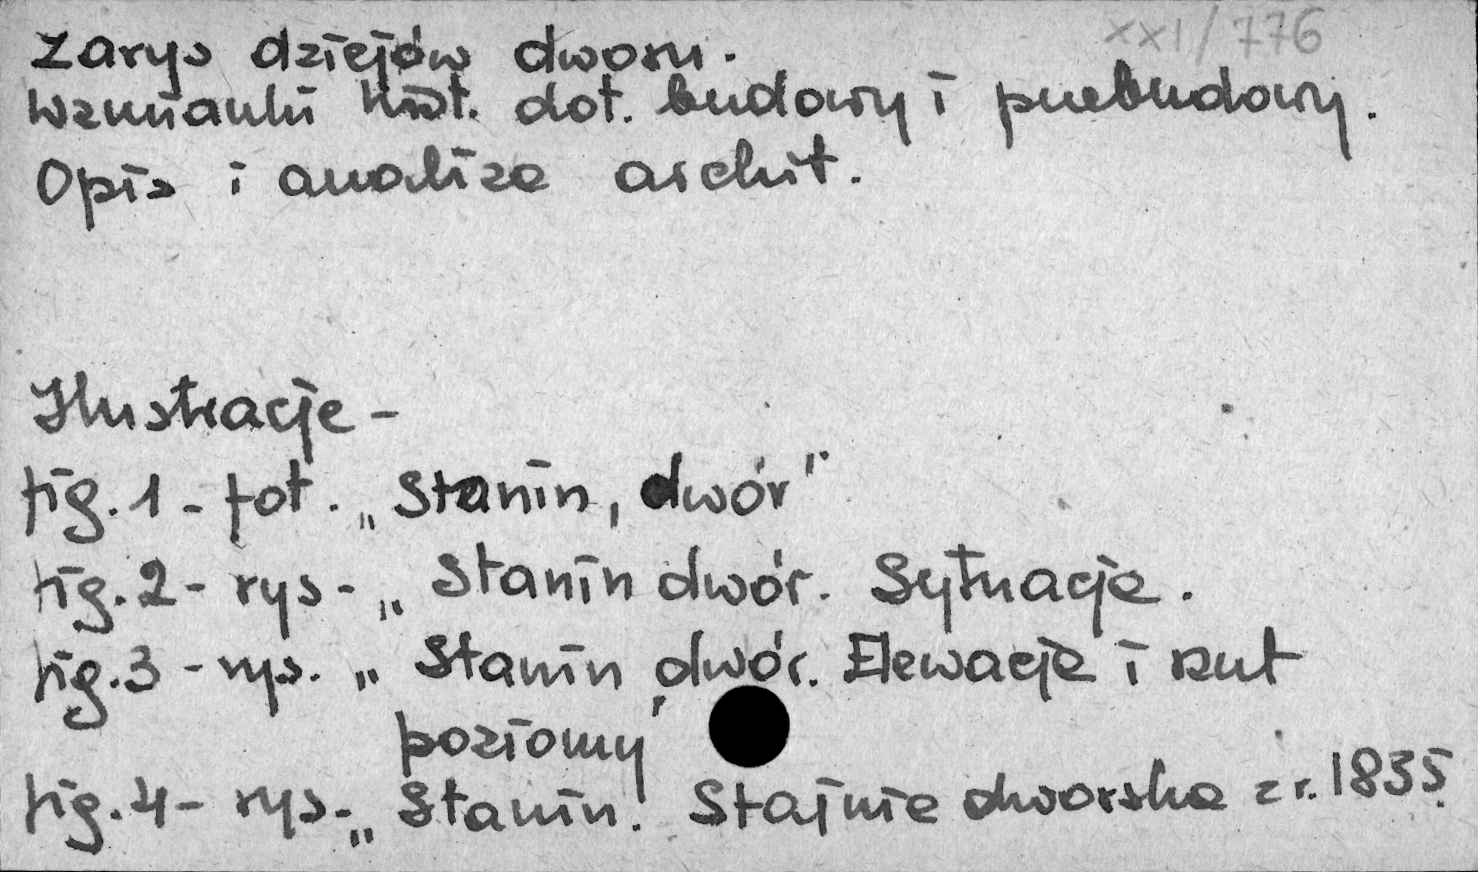 XXI/776
Zarys dziejów dworu.
Wzmianki hist. dot. budowy i przebudowy.
Opis i analiza archit.
Ilustracje -
fig. 1 - fot. „Stanin, dwór"
fig. 2 - rys - „Stanin dwór. Sytuacja.
fig. 3 - rys. „Stanin, dwór. Elewacja i rzut
poziomy"
fig. 4 - rys - „Stanin. Stajnia dworska z r. 1835.